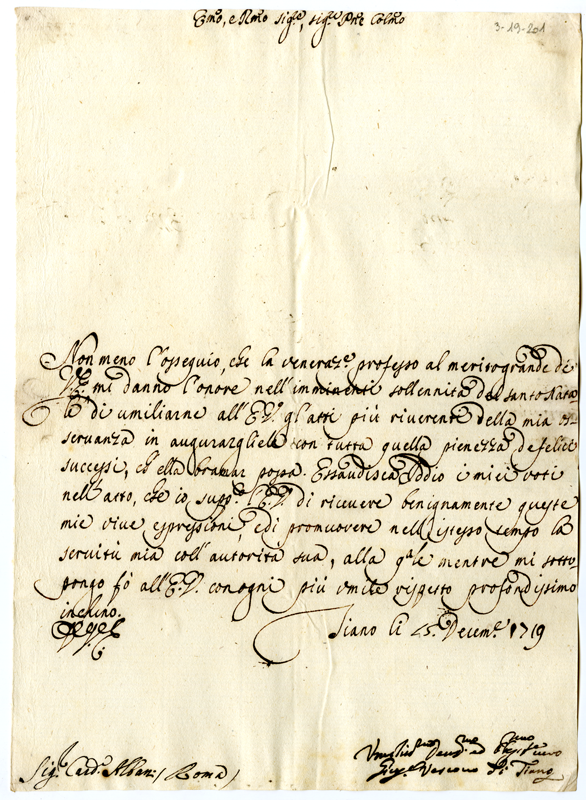 Emo, e Rmo Sigre, sigre Pne Colmo
3-19-201
Non meno l'ossequio, che la venerazne professo al merito grande di
V.E. mi danno l'onore nell'imminenti sollennità del santo Nata
le di umiliarne all'E.V. gl'atti più riverenti della mia os
servanza in augurargliele con tutta quella pienezza de felici
successi, ch'ella bramar possa. Essaudisca Iddio i miei voti
nell'atto, che io suppco l'E.V. di ricevere benignamente queste
mie vive espressioni, e di promuovere nell'istesso tempo la
servitù mia coll'autorità sua, alla qle mentre mi sotto
pongo fò all'E.V. con ogni più umile rispetto profondissimo
inchino.
Tiano li 25. Decemre 1719
Sigr Card. Albani (Roma)
Vescovo di Tiano